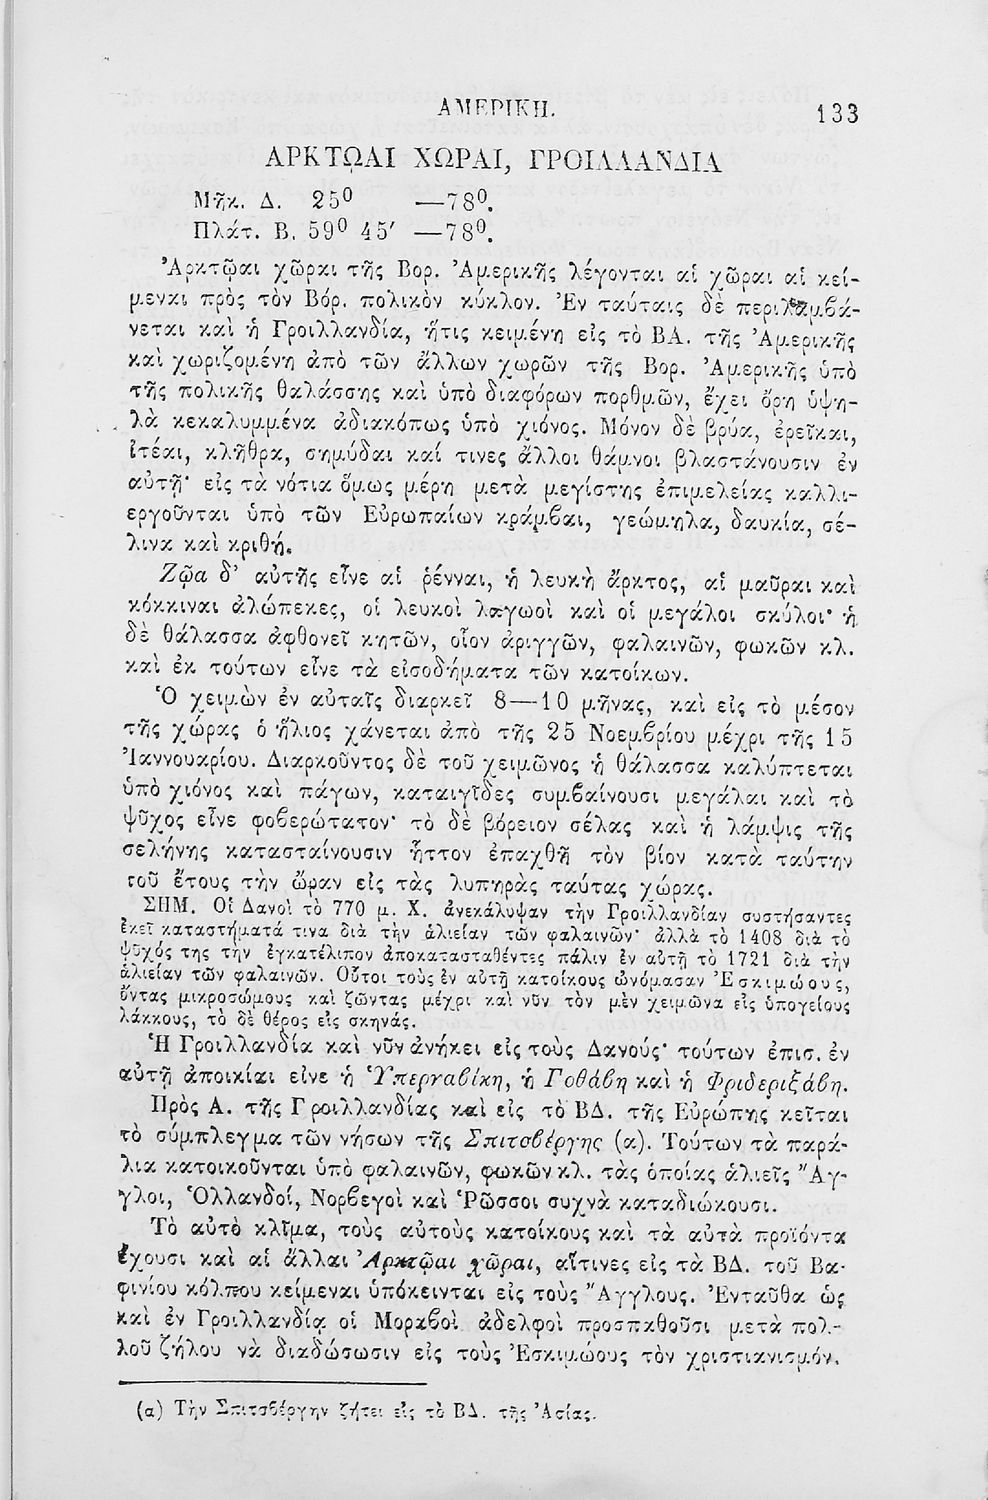 ΑΜΕΡΙΚΗ. 133
ΑΡΚΤΩΑΙ ΧΩΡΑΙ, ΓΡΟΙΛΛΑΝΔΙΑ
Μῆκ. Δ. 25⁰ —78⁰.
Πλάτ. Β. 59⁰ 45′ —78⁰.
Ἀρκτῷαι χῶραι τῆς Βορ. Ἀμερικῆς λέγονται αἱ χῶραι αἱ κεί-
μεναι πρὸς τὸν Βόρ. πολικὸν κύκλον. Ἐν ταύταις δὲ περιλαμβά-
νεται καὶ ἡ Γροιλλανδία, ἥτις κειμένη εἰς τὸ ΒΑ. τῆς Ἀμερικῆς
καὶ χωριζομένη ἀπὸ τῶν ἄλλων χωρῶν τῆς Βορ. Ἀμερικῆς ὑπὸ
τῆς πολικῆς θαλάσσης καὶ ὑπὸ διαφόρων πορθμῶν, ἔχει ὄρη ὑψη-
λὰ κεκαλυμμένα ἀδιακόπως ὑπὸ χιόνος. Μόνον δὲ βρύα, ἐρεῖκαι,
ἰτέαι, κλῆθρα, σημύδαι καί τινες ἄλλοι θάμνοι βλαστάνουσιν ἐν
αὐτῇ· εἰς τὰ νότια ὅμως μέρη μετὰ μεγίστης ἐπιμελείας καλλι-
εργοῦνται ὑπὸ τῶν Εὐρωπαίων κράμβαι, γεώμηλα, δαυκία, σέ-
λινα καὶ κριθή.
Ζῷα δ' αὐτῆς εἶνε αἱ ῥένναι, ἡ λευκὴ ἄρκτος, αἱ μαῦραι καὶ
κόκκιναι ἀλώπεκες, οἱ λευκοὶ λαγωοὶ καὶ οἱ μεγάλοι σκύλοι· ἡ
δὲ θάλασσα ἀφθονεῖ κητῶν, οἷον ἀριγγῶν, φαλαινῶν, φωκῶν κλ.
καὶ ἐκ τούτων εἶνε τὰ εἰσοδήματα τῶν κατοίκων.
Ὁ χειμὼν ἐν αὐταῖς διαρκεῖ 8—10 μῆνας, καὶ εἰς τὸ μέσον
τῆς χώρας ὁ ἥλιος χάνεται ἀπὸ τῆς 25 Νοεμβρίου μέχρι τῆς 15
Ἰαννουαρίου. Διαρκοῦντος δὲ τοῦ χειμῶνος ἡ θάλασσα καλύπτεται
ὑπὸ χιόνος καὶ πάγων, καταιγῖδες συμβαίνουσι μεγάλαι καὶ τὸ
ψῦχος εἶνε φοβερώτατον· τὸ δὲ βόρειον σέλας καὶ ἡ λάμψις τῆς
σελήνης κατασταίνουσιν ἧττον ἐπαχθῆ τὸν βίον κατὰ ταύτην
τοῦ ἔτους τὴν ὥραν εἰς τὰς λυπηρὰς ταύτας χώρας.
ΣΗΜ. Οἱ Δανοὶ τὸ 770 μ. Χ. ἀνεκάλυψαν τὴν Γροιλλανδίαν συστήσαντες
ἐκεῖ καταστήματά τινα διὰ τὴν ἁλιείαν τῶν φαλαινῶν· ἀλλὰ τὸ 1408 διὰ τὸ
ψῦχός της τὴν ἐγκατέλιπον ἀποκατασταθέντες πάλιν ἐν αὐτῇ τὸ 1721 διὰ τὴν
ἁλιείαν τῶν φαλαινῶν. Οὗτοι τοὺς ἐν αὐτῇ κατοίκους ὠνόμασαν Ἐσκιμώους,
ὄντας μικροσώμους καὶ ζῶντας μέχρι καὶ νῦν τὸν μὲν χειμῶνα εἰς ὑπογείους
λάκκους, τὸ δὲ θέρος εἰς σκηνάς.
Ἡ Γροιλλανδία καὶ νῦν ἀνήκει εἰς τοὺς Δανούς· τούτων ἐπισ. ἐν
αὐτῇ ἀποικίαι εἶνε ἡ Ὑπερναβίκη, ἡ Γοθάβη καὶ ἡ Φριδεριξάβη.
Πρὸς Α. τῆς Γροιλλανδίας καὶ εἰς τὸ ΒΔ. τῆς Εὐρώπης κεῖται
τὸ σύμπλεγμα τῶν νήσων τῆς Σπιτσβέργης (α). Τούτων τὰ παρά-
λια κατοικοῦνται ὑπὸ φαλαινῶν, φωκῶν κλ. τὰς ὁποίας ἁλιεῖς Ἄγ-
γλοι, Ὁλλανδοί, Νορβεγοὶ καὶ Ῥῶσσοι συχνὰ καταδιώκουσι.
Τὸ αὐτὸ κλῖμα, τοὺς αὐτοὺς κατοίκους καὶ τὰ αὐτὰ προϊόντα
ἔχουσι καὶ αἱ ἄλλαι Ἀρκτῷαι χῶραι, αἵτινες εἰς τὰ ΒΔ. τοῦ Βα-
φινίου κόλπου κείμεναι ὑπόκεινται εἰς τοὺς Ἄγγλους. Ἐνταῦθα ὡς
καὶ ἐν Γροιλλανδίᾳ οἱ Μοραβοὶ ἀδελφοὶ προσπαθοῦσι μετὰ πολ-
λοῦ ζήλου νὰ διαδώσωσιν εἰς τοὺς Ἐσκιμώους τὸν χριστιανισμόν.
(α) Τὴν Σπιτσβέργην ζήτει εἰς τὸ ΒΔ. τῆς Ἀσίας.